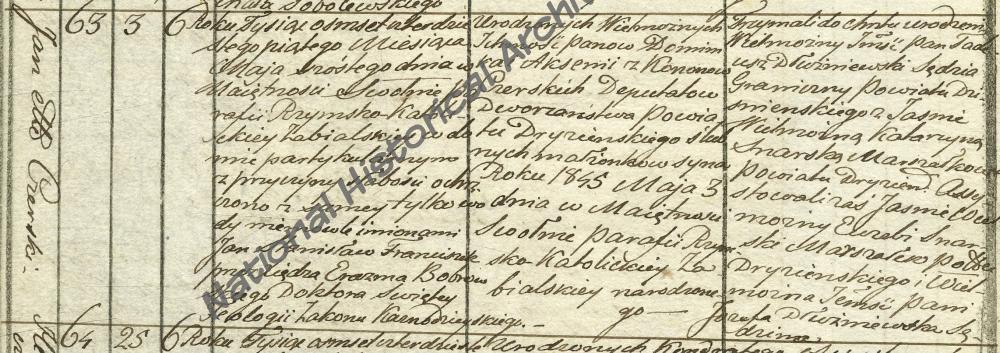 Jan Czerski.
63 3 6
Roku Tysiąc osmset czterdzie
stego piątego Miesiąca
Maja szóstego dnia w
Maiętności Swołnie Pa
rafii Rzymsko-Kato
lickiey Zabialskiey w do
mie partykularnym
z przyczyny słabości ochrz
czono z samey tylko wo
dy niemowle imionami
Jan Stanisław Franciszek
przez Xiędza Erazma Bobrow
skiego Doktora Swiętey
Teologii Zakonu Kaznodzieyskiego.—
Urodzonych Wielmożnych
Ichmość panow Domini
ka i z Kononow
Czerskich Deputatow
Dworzaństwa Powia
tu Dryzienskiego ślub
nych małżonkow syna
Roku 1845 Maja 3
dnia w Maiętności
Swołnie parafii Rzym
sko Katolickiey Za
bialskiey narodzone
go —
Trzymali do chrztu urodzeni
Wielmożny Imść pan Tade
usz Sędzia
Graniczny Powiatu Dzi
snienskiego z Jaśnie
Wielmożną Katarzyną
Snarską Marszałkową
Powiatu Dryzien. Assy
stowali zaś Jaśnie Wiel
możny Euzebi Snar
ski Marszałek
Dryzienskiego i Wiel
można Jeymść pani
Józefa Sę
dzina.
64 25 6
Roku Tysiąc osmset czterdzieste
Urodzonych
National Historical Archiv